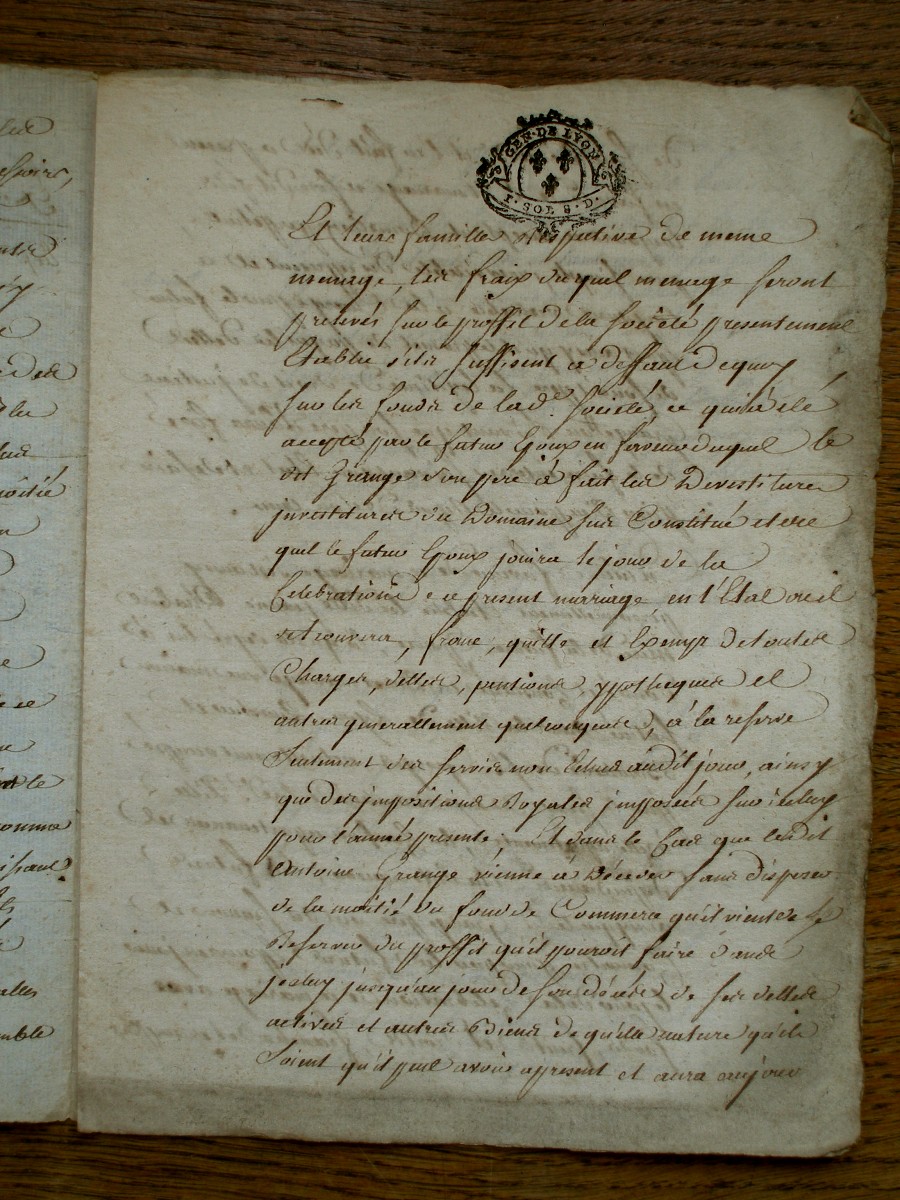 GEN. DE LYON
1. SOL 8. D.
Et leurs famille respective de meme
menage, les fraix duquel menage seront
prelevés sur le proffit de la societé presentement
Etablie s'ils suffisent a deffaut dequoy
sur les fonds de lad.e societé, ce qui a eté
accepté par le futur Epoux en faveur duquel le
dit Grange son pere à fait les Devestitures
jnvestitures du Domaine sus Constitué et
quel le futur Epoux joüira le jour de la
Celebration ce present marriage, en l'Etat ou il
se trouvera, franc, quitte et Exempt de toutes
Charges, dettes, pentions, ypotheques et
autres generallement quelconques, à la reserve
Seulement des servis non Echus audit jour, ainsy
que des jmpositions Royales jmposées sur iceluy
pour l'année presente; Et dans le Cas que ledit
Antoine Grange vienne à Décéder sans disposer
de la moitié du fond de Commerce qu'il vient de se
Reserver du proffit qu'il pouroit faire dans
jceluy jusqu'au jour de son décés de ses dettes
actives et autres Biens de quelle nature qu'ils
Soient qu'il peut avoir apresent et aura au jour